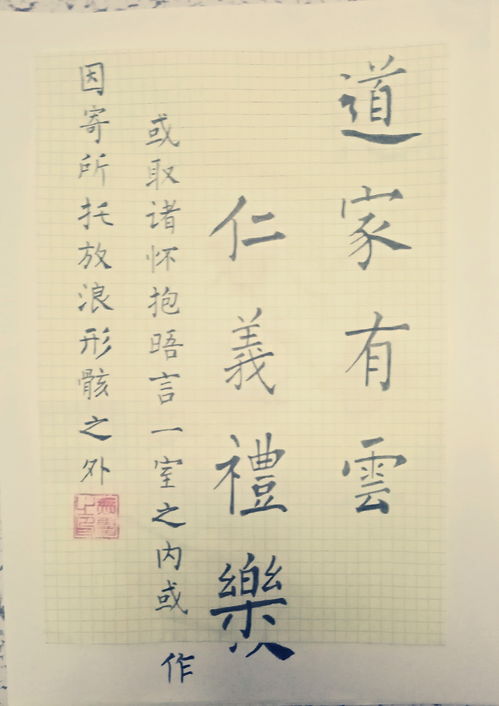 道家有雲
仁義禮樂
或取诸怀抱晤言一室之内或
作
因寄所托放浪形骸之外